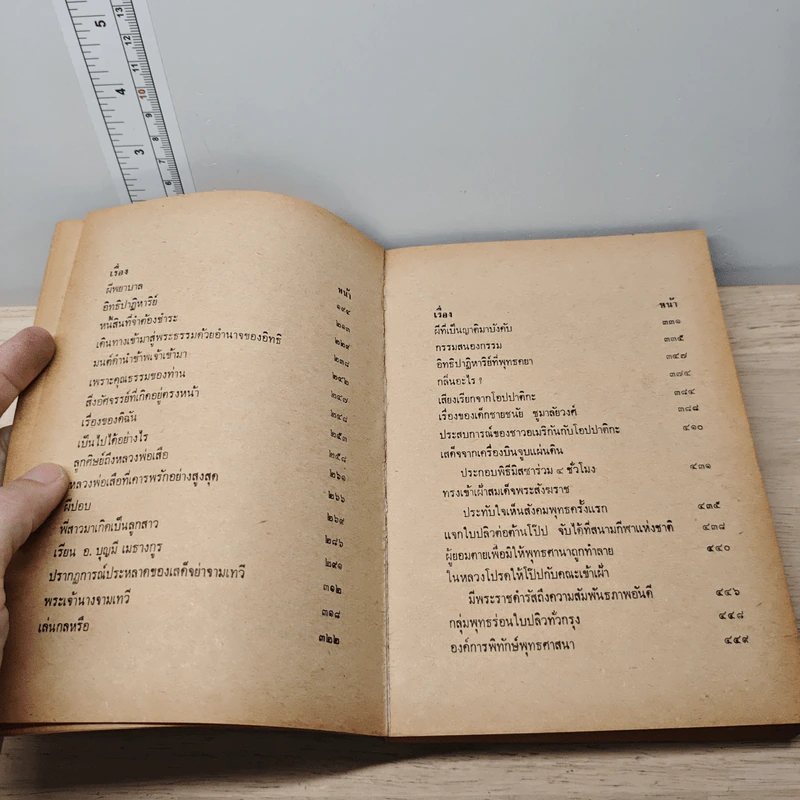 5
13
12
11
4
10
9
8
3
7
6
เรื่อง หน้า
ผีพยาบาล ๑๙๔
อิทธิปาฏิหาริย์ ๒๑๓
หนี้สินที่จำต้องชำระ ๒๒๙
เดินทางเข้ามาสู่พระธรรมด้วยอำนาจของอิทธิ ๒๓๘
มนต์ดำนำข้าพเจ้าเข้ามา ๒๔๒
เพราะคุณธรรมของท่าน ๒๔๗
สิ่งอัศจรรย์ที่เกิดอยู่ตรงหน้า ๒๔๘
เรื่องของดิฉัน ๒๕๓
เป็นไปได้อย่างไร ๒๕๘
ลูกศิษย์ถึงหลวงพ่อเสือ ๒๖๑
หลวงพ่อเสือที่เคารพรักอย่างสูงสุด ๒๖๖
ผีปอบ ๒๖๙
พี่สาวมาเกิดเป็นลูกสาว ๒๘๖
เรียน อ. บุญมี เมธางกูร ๒๙๑
ปรากฏการณ์ประหลาดของเสด็จย่าจามเทวี ๓๑๒
พระเจ้านางจามเทวี ๓๑๘
เล่นกลหรือ ๓๒๒
เรื่อง หน้า
ผีที่เป็นญาติมาบังคับ ๓๓๑
กรรมสนองกรรม ๓๓๕
อิทธิปาฏิหาริย์ที่พุทธคยา ๓๔๗
กลิ่นอะไร ? ๓๗๔
เสียงเรียกจากโอปปาติกะ ๓๘๔
เรื่องของเด็กชายชนัย ชูมาลัยวงศ์ ๓๘๘
ประสบการณ์ของชาวอเมริกันกับโอปปาติกะ ๔๑๐
เสด็จจากเครื่องบินจูบแผ่นดิน
ประกอบพิธีมิสซาร่วม ๔ ชั่วโมง ๔๓๑
ทรงเข้าเฝ้าสมเด็จพระสังฆราช
ประทับใจเห็นสังคมพุทธครั้งแรก ๔๓๕
แจกใบปลิวต่อต้านโป๊ป จับได้ที่สนามกีฬาแห่งชาติ ๔๓๘
ผู้ยอมตายเพื่อมิให้พุทธศาสนาถูกทำลาย ๔๔๐
ในหลวงโปรดให้โป๊ปกับคณะเข้าเฝ้า
มีพระราชดำรัสถึงความสัมพันธภาพอันดี ๔๔๖
กลุ่มพุทธร่อนใบปลิวทั่วกรุง ๔๔๘
องค์การพิทักษ์พุทธศาสนา ๔๔๙